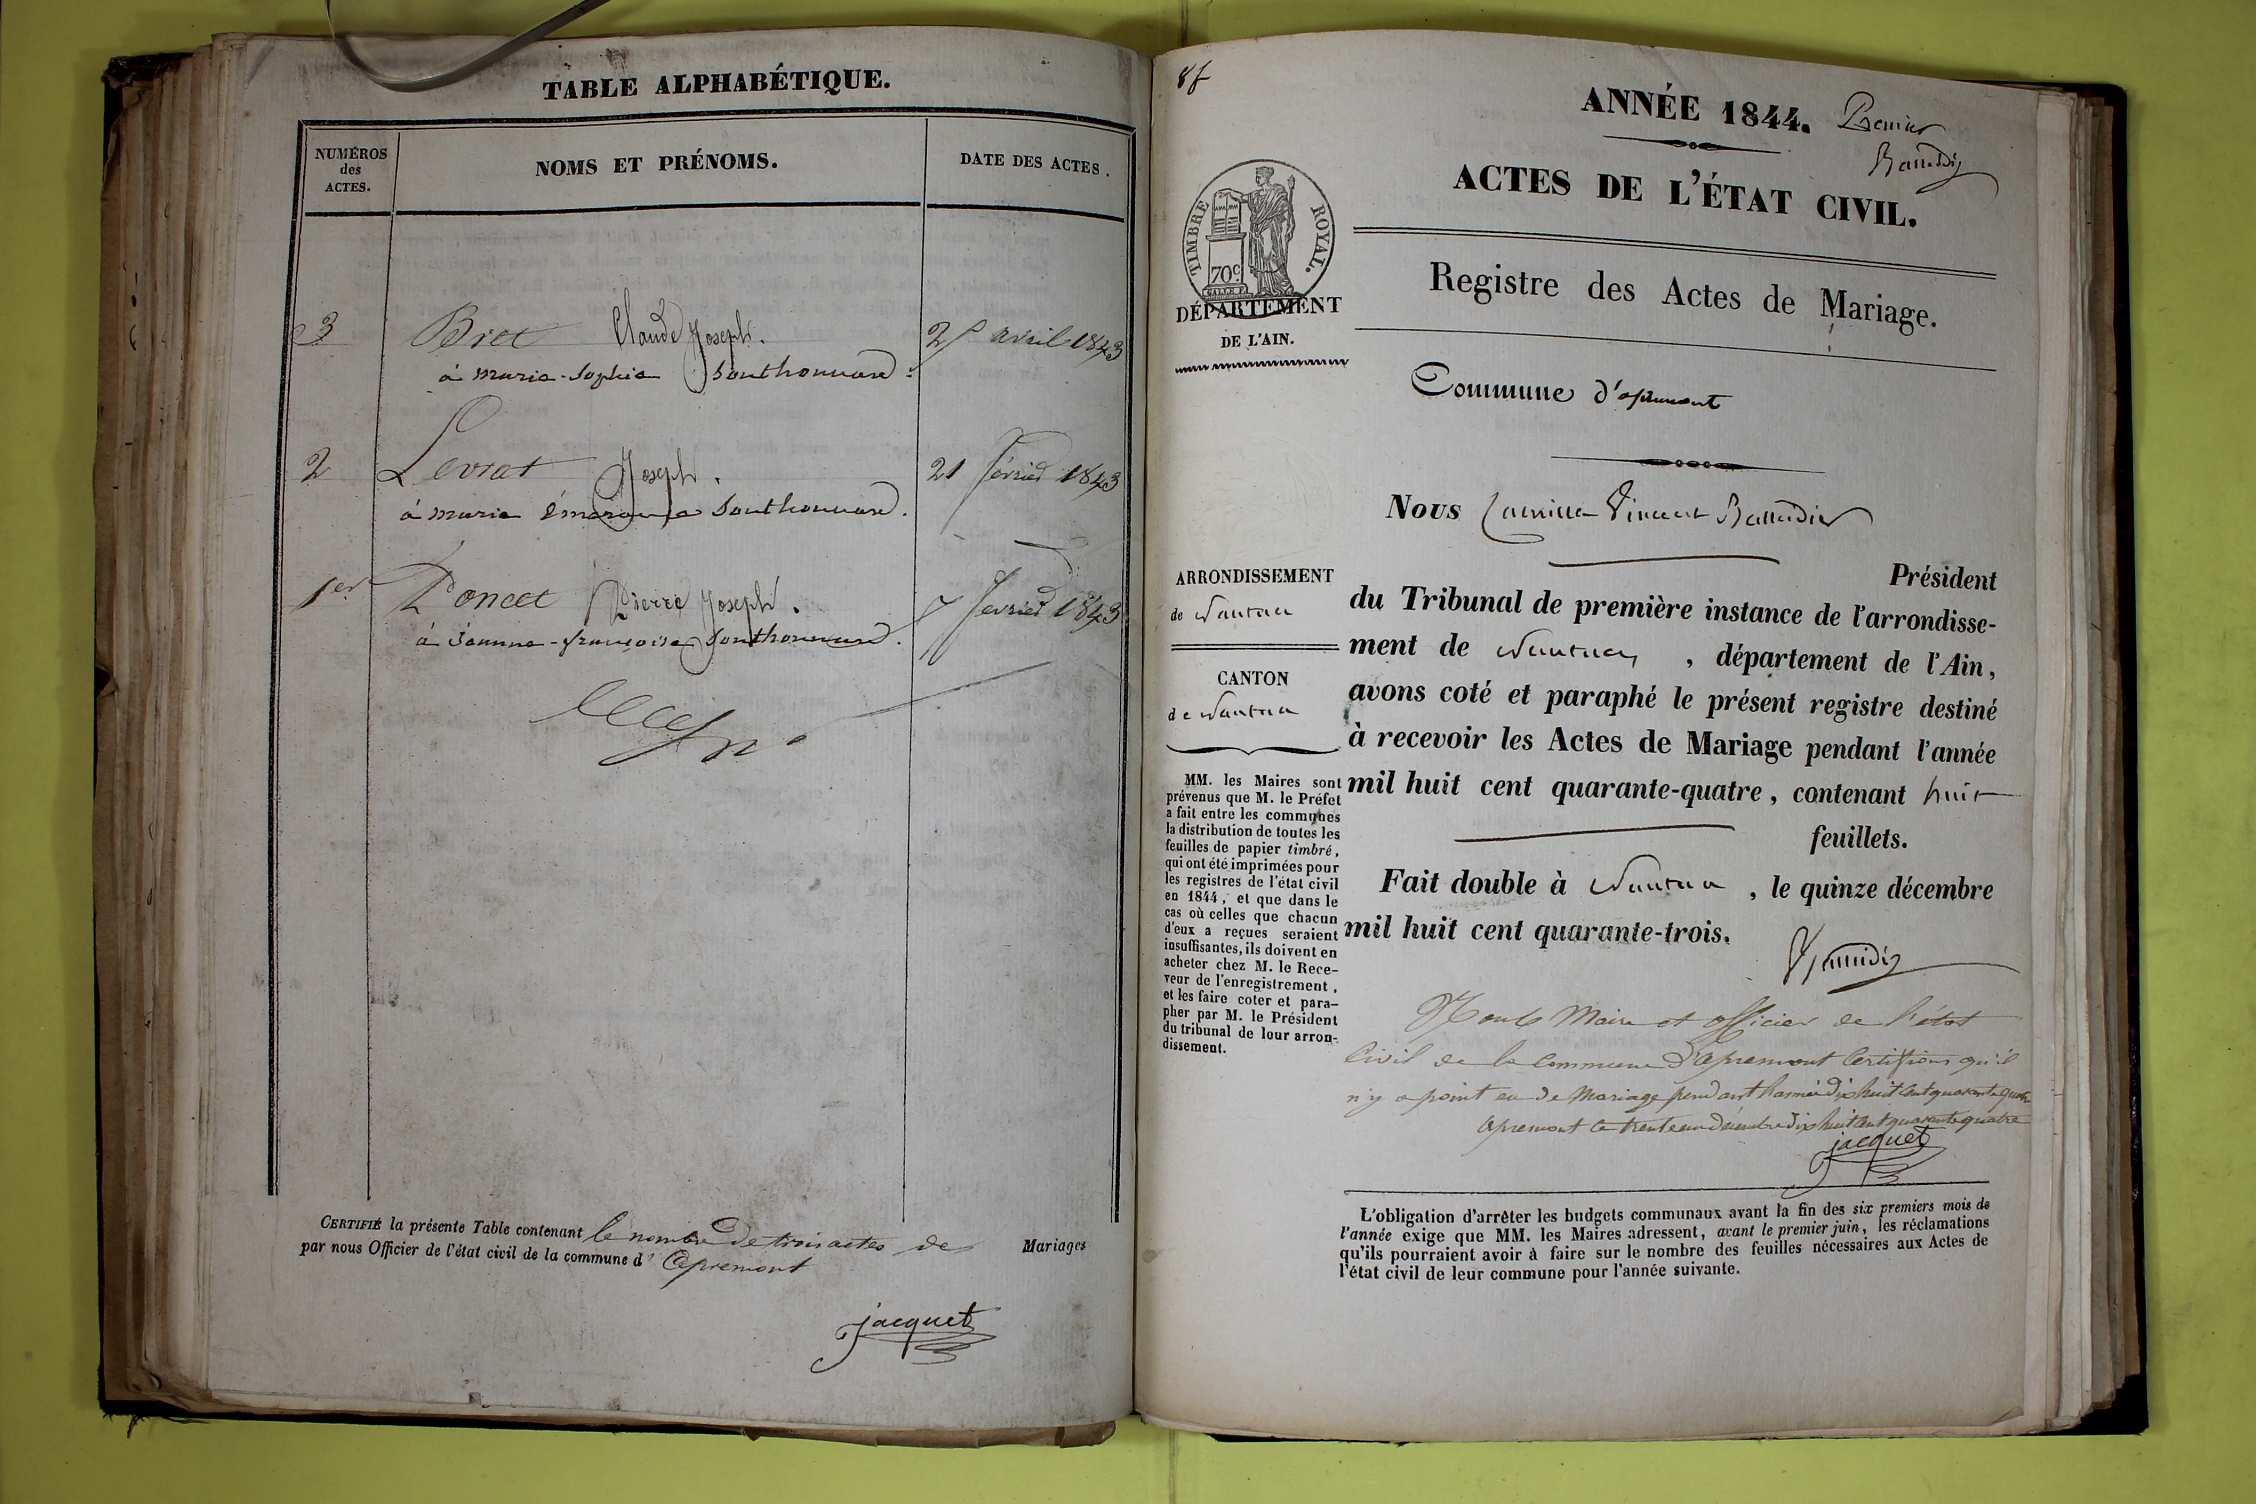 TABLE ALPHABÉTIQUE.
NUMÉROS
des
ACTES.
NOMS ET PRÉNOMS.
DATE DES ACTES.
3 Bret Claude Joseph. avril 1843
à marie-Sophie Southonnard.
2 Levrat Joseph. 21 février 1843
à marie Southonnard.
1er Poncet Pierre Joseph. 7 février 1843
à Jeanne-françoise Southonnard.
CERTIFIÉ la présente Table contenant le nombre de trois actes de Mariages
par nous Officier de l'état civil de la commune d' Apremont
jacquet
8 f
ANNÉE 1844. Premier
ACTES DE L'ÉTAT CIVIL.
TIMBRE ROYAL.
70c
Registre des Actes de Mariage.
DÉPARTEMENT
DE L'AIN.
Commune d'apremont
Nous Vincent Baudier
Président
du Tribunal de première instance de l'arrondisse-
ment de Nantua, département de l'Ain,
avons coté et paraphé le présent registre destiné
à recevoir les Actes de Mariage pendant l'année
mil huit cent quarante-quatre, contenant huit
feuillets.
Fait double à Nantua, le quinze décembre
mil huit cent quarante-trois.
ARRONDISSEMENT
de Nantua
CANTON
de Nantua
MM. les Maires sont
prévenus que M. le Préfet
a fait entre les communes
la distribution de toutes les
feuilles de papier timbré,
qui ont été imprimées pour
les registres de l'état civil
en 1844, et que dans le
cas où celles que chacun
d'eux a reçues seraient
insuffisantes, ils doivent en
acheter chez M. le Rece-
veur de l'enregistrement,
et les faire coter et para-
pher par M. le Président
du tribunal de leur arron-
dissement.
Nous Maire et officier de l'état
Civil de la Commune d'apremont Certifions qu'il
n'y a point eu de Mariage pendant l'année dix huit cent quarante quatre
apremont le trente un décembre dix huit cent quarante quatre
jacquet
L'obligation d'arrêter les budgets communaux avant la fin des six premiers mois de
l'année exige que MM. les Maires adressent, avant le premier juin, les réclamations
qu'ils pourraient avoir à faire sur le nombre des feuilles nécessaires aux Actes de
l'état civil de leur commune pour l'année suivante.